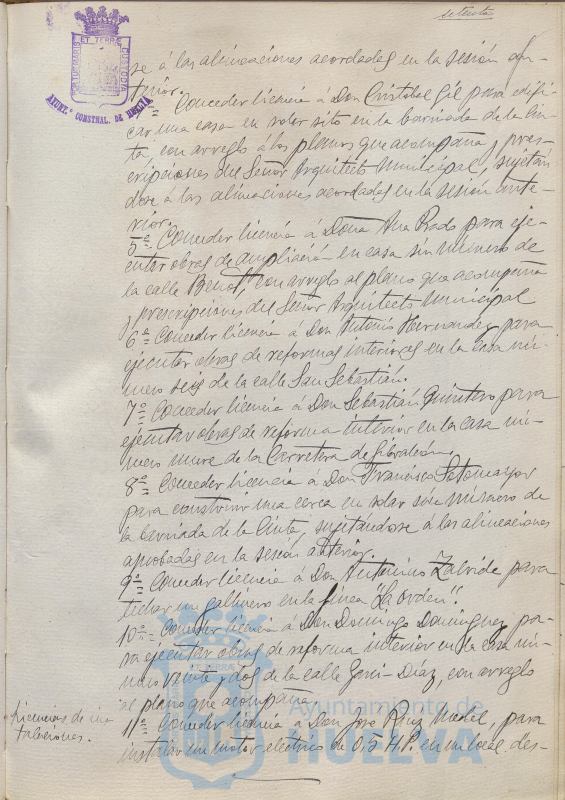 setenta
PORTUS MARIS ET TERRÆ CUSTODIA
AYUNT.º CONSTNAL. DE HUELVA
se á las alineaciones acordadas en la sesión an-
terior.
Conceder licencia á Don Cristobal Gil para edifi-
car una casa en solar sito en la barriada de la Cin-
ta, con arreglo á los planos que acompaña y pres-
cripciones del Señor Arquitecto Municipal, sujetán
dose á las alineaciones acordadas en la sesión ante-
rior.
5ª = Conceder licencia á Doña Ana Rado para eje-
cutar obras de ampliación en casa sin número de
la calle Benot, con arreglo al plano que acompaña
y prescripciones del Señor Arquitecto Municipal
6ª = Conceder licencia á Don Antonio Hernandez para
ejecutar obras de reformas interiores en la casa nú-
mero seis de la calle San Sebastián.
7ª = Conceder licencia á Don Sebastián Quintero para
ejecutar obras de reforma interior en la casa nú-
mero nueve de la Carretera de Gibraleón.
8ª = Conceder licencia á Don Francisco Sotomayor
para construir una cerca en solar sin número de
la barriada de la Cinta, sujitandose á las alineaciones
aprobadas en la sesión anterior.
9ª = Conceder licencia á Don Antonino Zalvide para
techar un gallinero en la finca "La Orden".
10ª = Conceder licencia á Don Domingo Dominguez pa-
ra ejecutar obras de reforma interior en la casa nú-
mero veinte y dos de la calle Garci-Díaz, con arreglo
al plano que acompaña.
Licencias de ins
talaciones.
11ª = Conceder licencia á Don José Ruiz para
instalar un motor electrico de 0,5 H.P. en un local des-
Ayuntamiento de
HUELVA